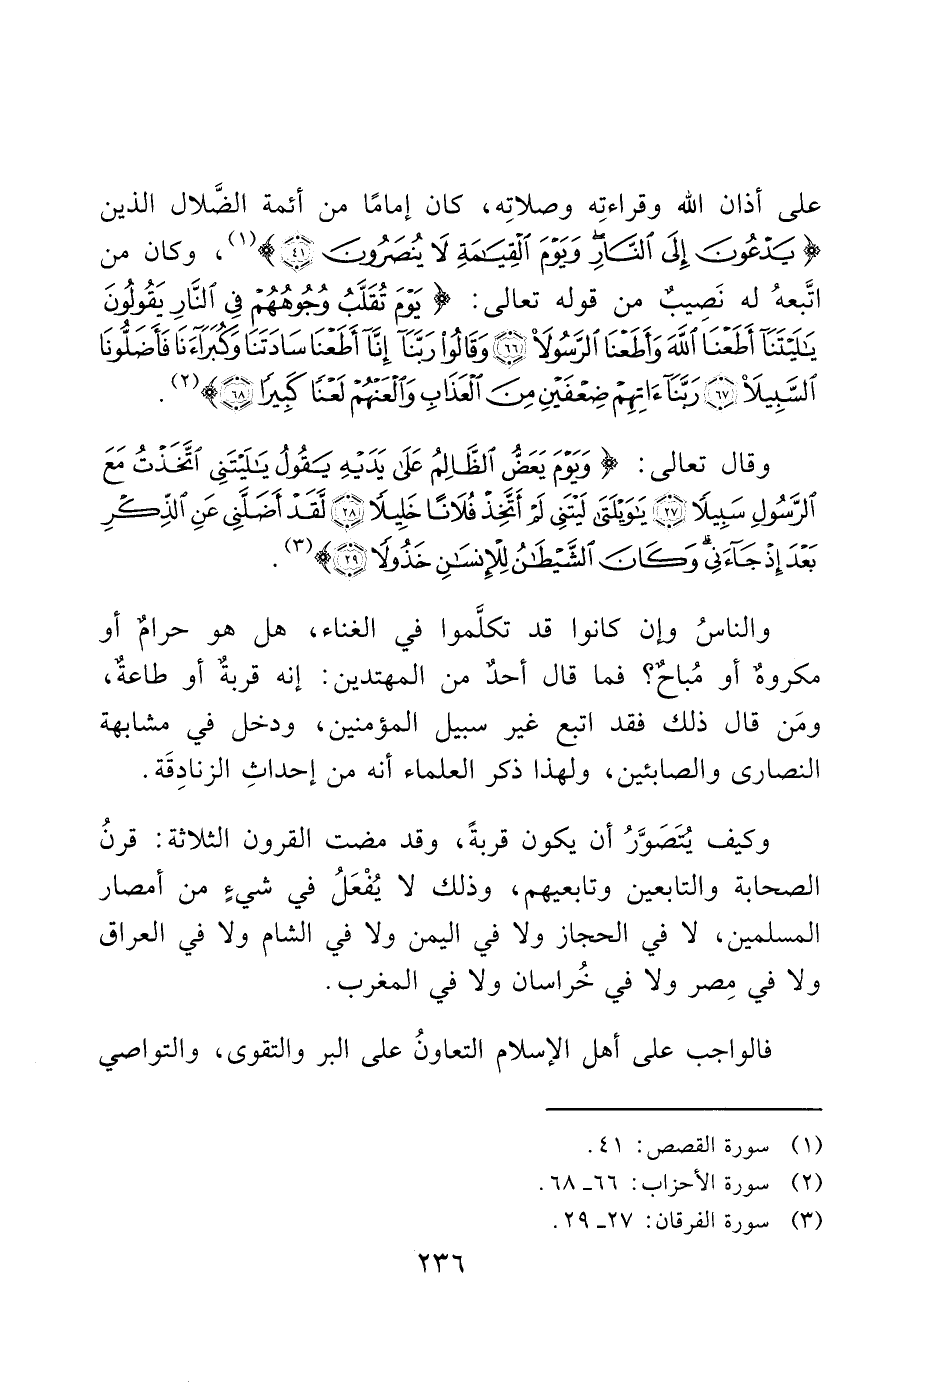 على أذان الله وقراءتِه وصلاتِه، كان إمامًا من أئمة الضَّلال الذين
﴿ يَدْعُونَ إِلَى ٱلنَّارِۖ وَيَوْمَ ٱلْقِيَٰمَةِ لَا يُنصَرُونَ ٤١ ﴾(١)، وكان من
اتَّبعهُ له نَصِيبٌ من قوله تعالى: ﴿ يَوْمَ تُقَلَّبُ وُجُوهُهُمْ فِي ٱلنَّارِ يَقُولُونَ
يَٰلَيْتَنَآ أَطَعْنَا ٱللَّهَ وَأَطَعْنَا ٱلرَّسُولَا۠ ٦٦ وَقَالُوا۟ رَبَّنَآ إِنَّآ أَطَعْنَا سَادَتَنَا وَكُبَرَآءَنَا فَأَضَلُّونَا
ٱلسَّبِيلَا۠ ٦٧ رَبَّنَآ ءَاتِهِمْ ضِعْفَيْنِ مِنَ ٱلْعَذَابِ وَٱلْعَنْهُمْ لَعْنًا كَبِيرًا ٦٨ ﴾(٢).
وقال تعالى: ﴿ وَيَوْمَ يَعَضُّ ٱلظَّالِمُ عَلَىٰ يَدَيْهِ يَقُولُ يَٰلَيْتَنِي ٱتَّخَذْتُ مَعَ
ٱلرَّسُولِ سَبِيلًا ٢٧ يَٰوَيْلَتَىٰ لَيْتَنِي لَمْ أَتَّخِذْ فُلَانًا خَلِيلًا ٢٨ لَّقَدْ أَضَلَّنِي عَنِ ٱلذِّكْرِ
بَعْدَ إِذْ جَآءَنِيۗ وَكَانَ ٱلشَّيْطَٰنُ لِلْإِنسَٰنِ خَذُولًا ٢٩ ﴾(٣).
والناسُ وإن كانوا قد تكلَّموا في الغناء، هل هو حرامٌ أو
مكروهٌ أو مُباحٌ؟ فما قال أحدٌ من المهتدين: إنه قربةٌ أو طاعةٌ،
ومَن قال ذلك فقد اتبع غير سبيل المؤمنين، ودخل في مشابهة
النصارى والصابئين، ولهذا ذكر العلماء أنه من إحداثِ الزنادِقَة.
وكيف يُتَصَوَّرُ أن يكون قربةً، وقد مضت القرون الثلاثة: قرنُ
الصحابة والتابعين وتابعيهم، وذلك لا يُفْعَلُ في شيءٍ من أمصار
المسلمين، لا في الحجاز ولا في اليمن ولا في الشام ولا في العراق
ولا في مِصر ولا في خُراسان ولا في المغرب.
فالواجب على أهل الإسلام التعاونُ على البر والتقوى، والتواصي
(١) سورة القصص: ٤١.
(٢) سورة الأحزاب: ٦٦ـ ٦٨.
(٣) سورة الفرقان: ٢٧ـ ٢٩.
٢٣٦